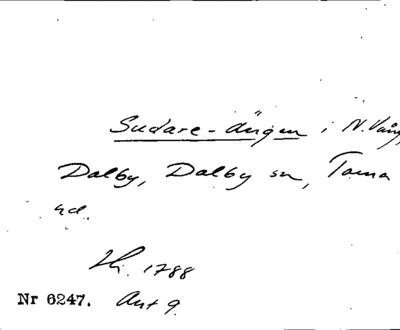 Sudare-ängen i N. Vång,
Dalby, Dalby sn, Torna
hd.
Hi. 1788
Nr 6247. Akt 9.